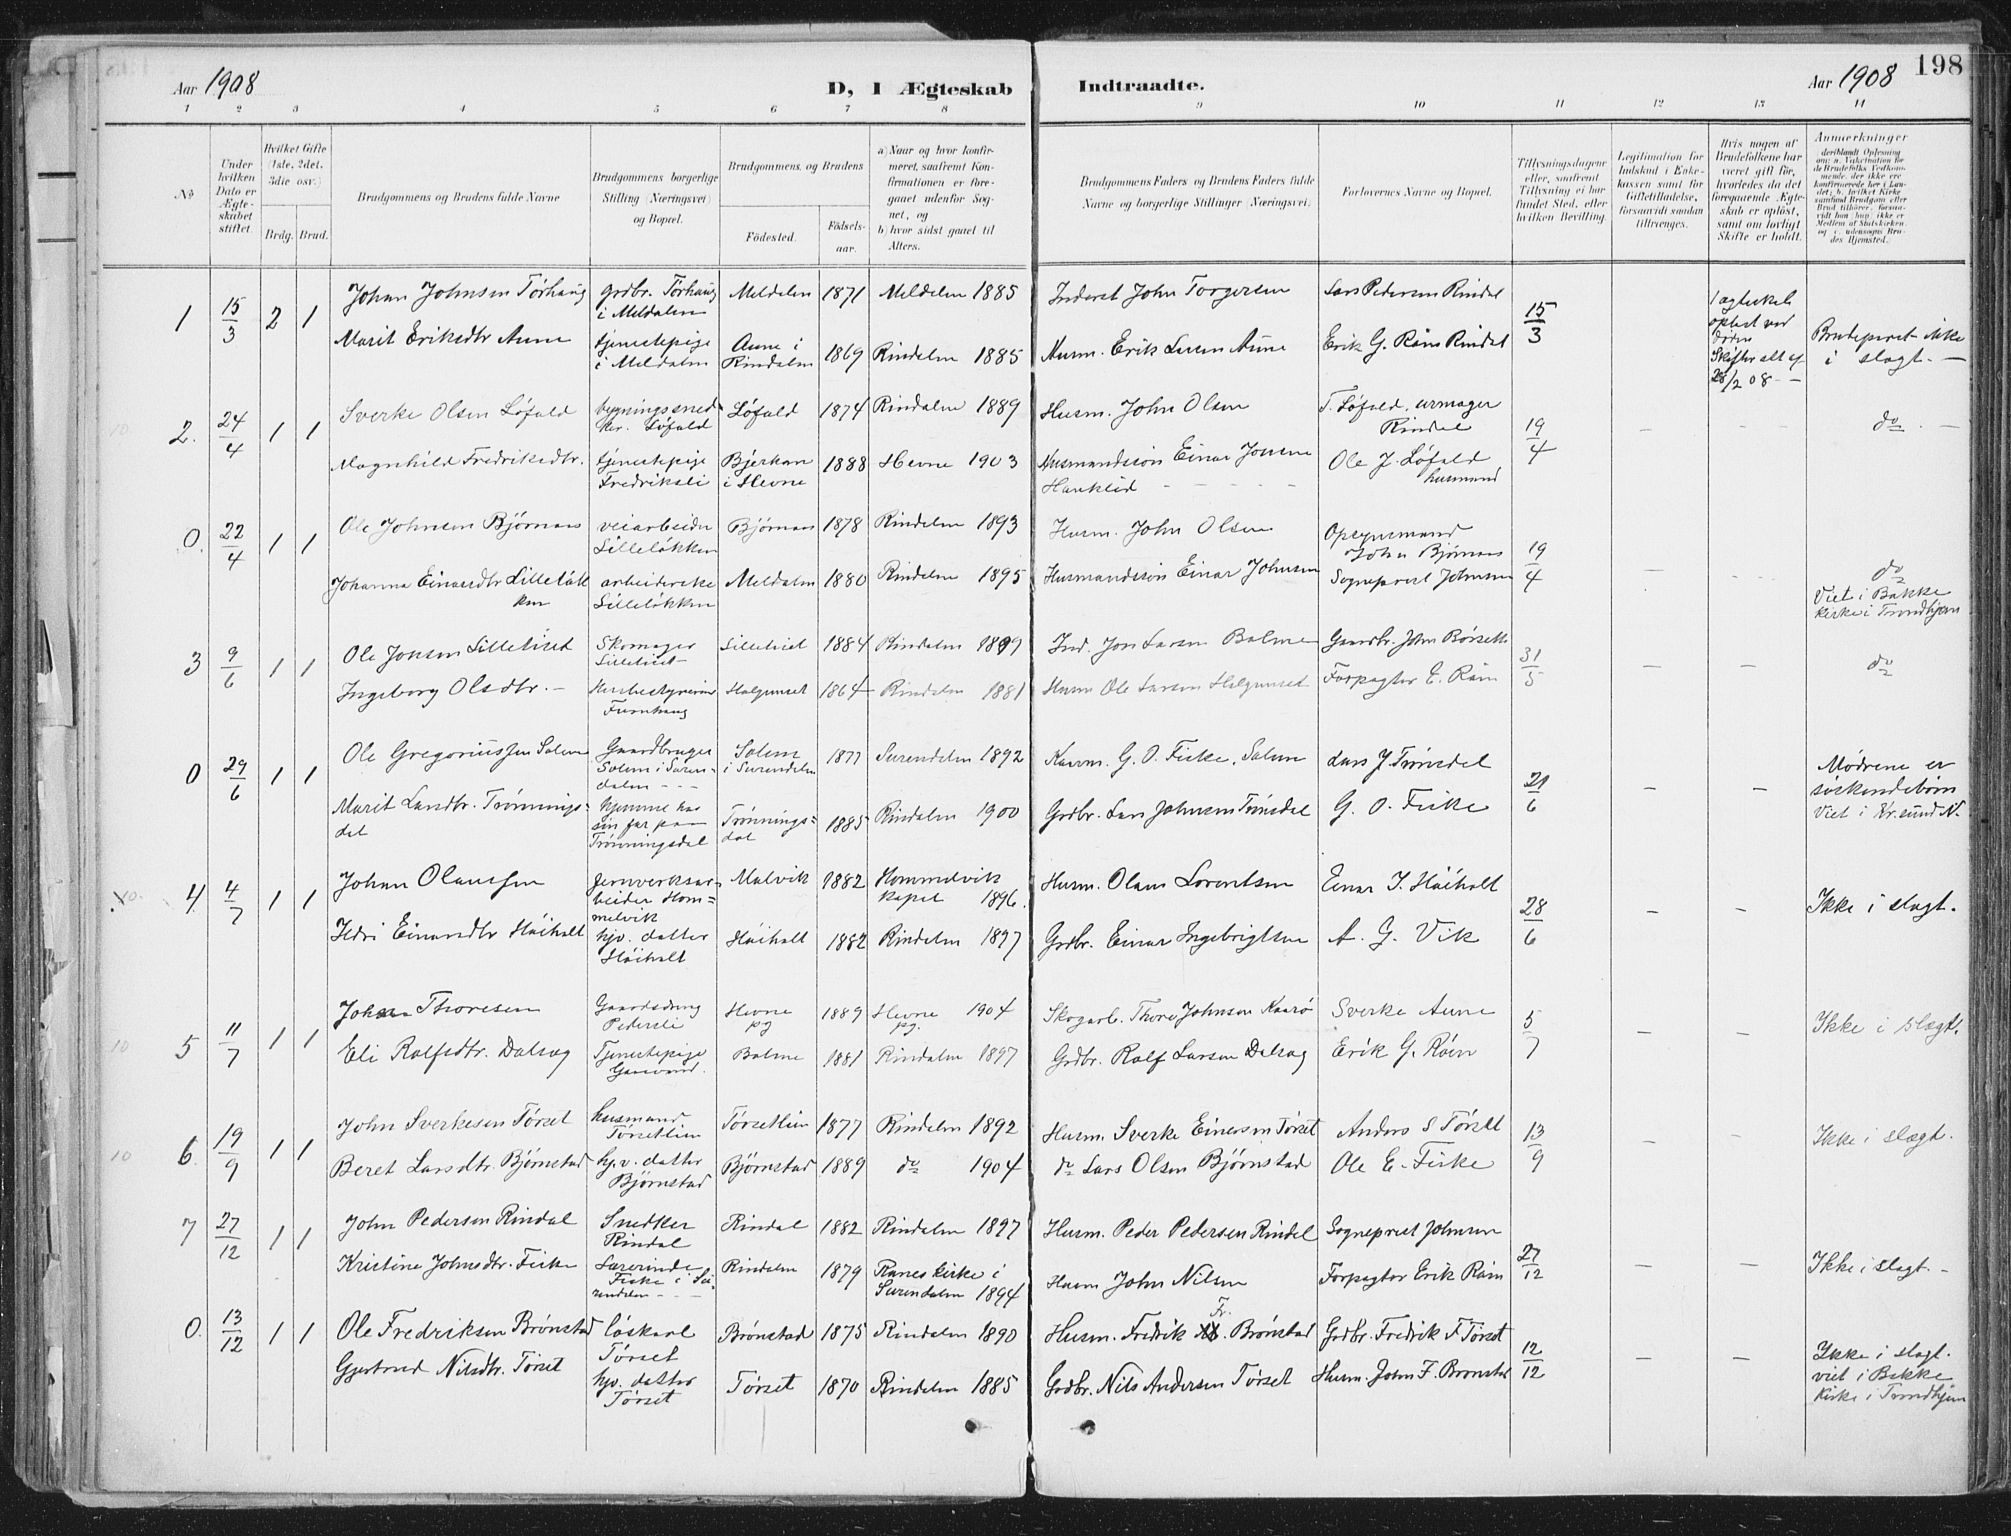 198
Aar 1908
D, I Ægteskab Indtraadte.
Aar 1908
1 2 3 4 5 6 7 8 9 10 11 12 13 14
No
Under hvilken Dato er Ægteskabet stiftet.
Hvilket Gifte (1ste, 2det, 3die osv.)
Brdg. Brud.
Brudgommens og Brudens fulde Navne
Brudgommens borgerlige Stilling (Næringsvei) og Bopæl.
Brudgommens og Brudens
Fødested.
Fødselsaar.
a) Naar og hvor konfirmeret, saafremt Konfirmationen er foregaaet udenfor Sognet, og
b) hvor sidst gaaet til Alters.
Brudgommens Faders og Brudens Faders fulde Navne og borgerlige Stillinger (Næringsvei).
Forlovernes Navne og Bopæl.
Tillysningsdagene eller, saafremt Tillysning ei har fundet Sted, efter hvilken Bevilling.
Legitimation for Indskud i Enkekassen samt for Giftetilladelse, forsaavidt saadan tiltrænges.
Hvis nogen af Brudefolkene har været gift før, hvorledes da det foregaaende Ægteskab er opløst, samt om lovligt Skifte er holdt.
Anmerkninger
1 15/3 2 1 Johan Johnsen Tørhaug grdbr. Tørhaug i Meldalen Meldalen 1871 Meldalen 1885 Inderst John Torgersen Lars Pedersen Rindal 15/3 1 ægteskab opløst ved døden Skifteratt af 28/2 08 —
Marit Eriksdtr Aune tjenestepige i Meldalen Aune i Rindalen 1869 Rindalen 1885 Husm. Erik Larsen Aune Erik G. Røen Rindal Brudeparet ikke i slægt. —
2. 24/4 1 1 Sverke Olsen Løfald bygningssnedker. Løfald Løfald 1874 Rindalen 1889 Husm. John Olsen T. Løfald, urmager Rindal 19/4 — do —
Magnhild Fredriksdtr. tjenestepige Fredriksli Bjerkan i Hevne 1888 Hevne 1903 Husmandssøn Einar Jonsen Haukliid Ole J. Løfald husmand
0. 22/4 1 1 Ole Johnsen Bjørnaas veiarbeider Lilleløkken Bjørnaas 1878 Rindalen 1893 Husm. John Olsen Opsynsmand John Bjørnaas 19/4 —
Johanna Einarsdtr Lilleløkken arbeiderske Lilleløkken Meldalen 1880 Rindalen 1895 Husmandssøn Einar Johnsen Sogneprest Johnsen do Viet i Bakke Kirke i Trondhjem
3 9/6 1 1 Ole Jonsen Lilletiset Skomager Lilletiset 1884 Rindalen 1899 Ind. Jon Larsen Bolme Gaardbr. John Børseth 31/5 — — do
Ingeborg Olsdtr. — Husbestyrerinde Furuhaug Halgunset 1864 Rindalen 1881 Husm Ole Larsen Halgunset Forpagter E. Røen
0 29/6 1 1 Ole Gregoriussen Solem Gaardbruger Solem i Surendalen Solem i Surendalen 1877 Surendalen 1892 Kaarm. G. O. Fiske, Solem Lars J. Trønsdal 21/6 — — Mødrene er søskendebørn Viet i Kr.sund N.
Marit Larsdtr. Trønningsdal hjemme hos sin far paa Trønningsdal Trønningsdal 1885 Rindalen 1900 Grdbr. Lars Johnsen Trønsdal G. O. Fiske
4 4/7 1 1 Johan Olaussen Jernverksarbeider Hommelvik Malvik 1882 Hommelvik kapel 1896. Husm. Olaus Lorentsen Einar I. Høiholt 28/6 — — Ikke i slægt.
Ildri Einarsdtr Høiholt hjv. datter Høiholt Høiholt 1882 Rindalen 1897 Grdbr. Einar Ingebrigtsen A. G. Vik
10 5 11/7 1 1 Johan Thoresen Gaardsdreng Pedersli Hevne pg 1889 Hevne pg. 1904 Skogarb. Thore Johnsen Sverke Aune 5/7 — — Ikke i slægt.
Eli Rolfsdtr. Dalsæg Tjenestepige Bolme 1881 Rindalen 1897 Grdbr. Rolf Larsen Dalsæg Erik G. Røen
10 6 19/9 1 1 John Sverkesen Tørset husmand Tørsetlien Tørsetlien 1877 Rindalen 1892 Husm. Sverke Einersen Tørset Anders S Tørset 13/9 — — Ikke i slægt.
Beret Larsdtr. Bjørnstad hjv. datter Bjørnstad Bjørnstad 1889 do 1904 do Lars Olsen Bjørnstad Ole E. Fiske
7 27/12 1 1 John Pedersen Rindal Snedker Rindal Rindal 1882 Rindalen 1897 Husm. Peder Pedersen Rindal Sogneprest Johnsen 27/12 — — Ikke i slægt. —
Kristine Johnsdtr. Fiske Lærerinde Fiske i Surendalen Rindalen 1879 Ranes kirke i Surendalen 1894 Husm John Nilsen Forpagter Erik Røen
0. 13/12 1 1 Ole Fredriksen Brønstad løskarl Tørset Brønstad 1875 Rindalen 1890 Husm. Fredrik Fr. Brønstad Grdbr. Fredrik F Tørset 12/12 — — Ikke i slægt. viet i Bakke Kirke i Trondhjem
Gjertrud Nilsdtr. Tørset hjv. datter Tørset Tørset 1870 Rindalen 1885 Grdbr. Nils Andersen Tørset Husm. John F. Brønstad